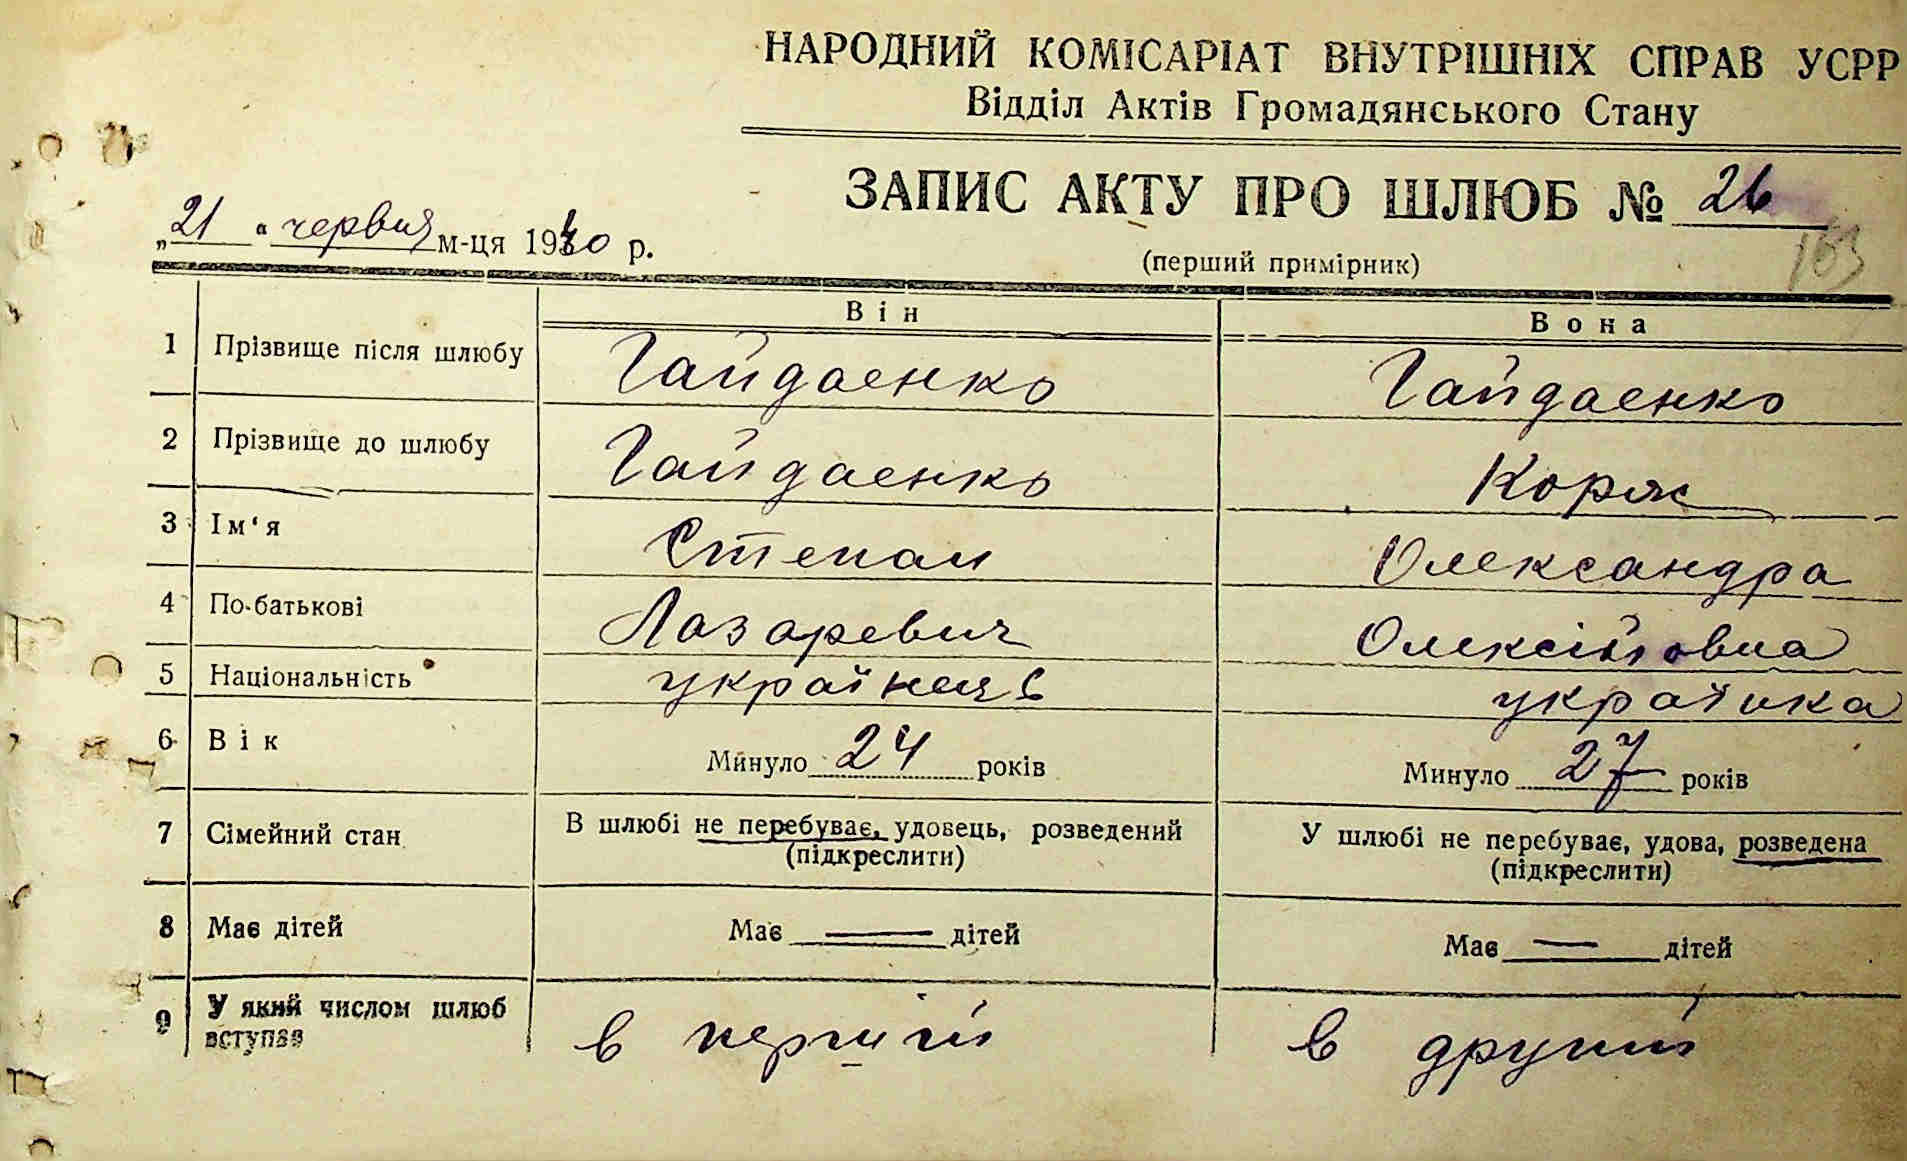 НАРОДНИЙ КОМІСАРІАТ ВНУТРІШНІХ СПРАВ УСРР
Відділ Актів Громадянського Стану
ЗАПИС АКТУ ПРО ШЛЮБ № 26
„21“ червня м-ця 1940 р.
(перший примірник)
163
Він Вона
1 Прізвище після шлюбу Гайдаенко Гайдаенко
2 Прізвище до шлюбу Гайдаенко Коряк
3 Ім‘я Степан Олександра
4 По-батькові Лазаревич Олексійовна
5 Національність українець українка
6 Вік Минуло 24 років Минуло 27 років
7 Сімейний стан В шлюбі не перебуває, удовець, розведений У шлюбі не перебуває, удова, розведена
(підкреслити) (підкреслити)
8 Має дітей Має — дітей Має — дітей
9 У який числом шлюб вступає в перший в другий